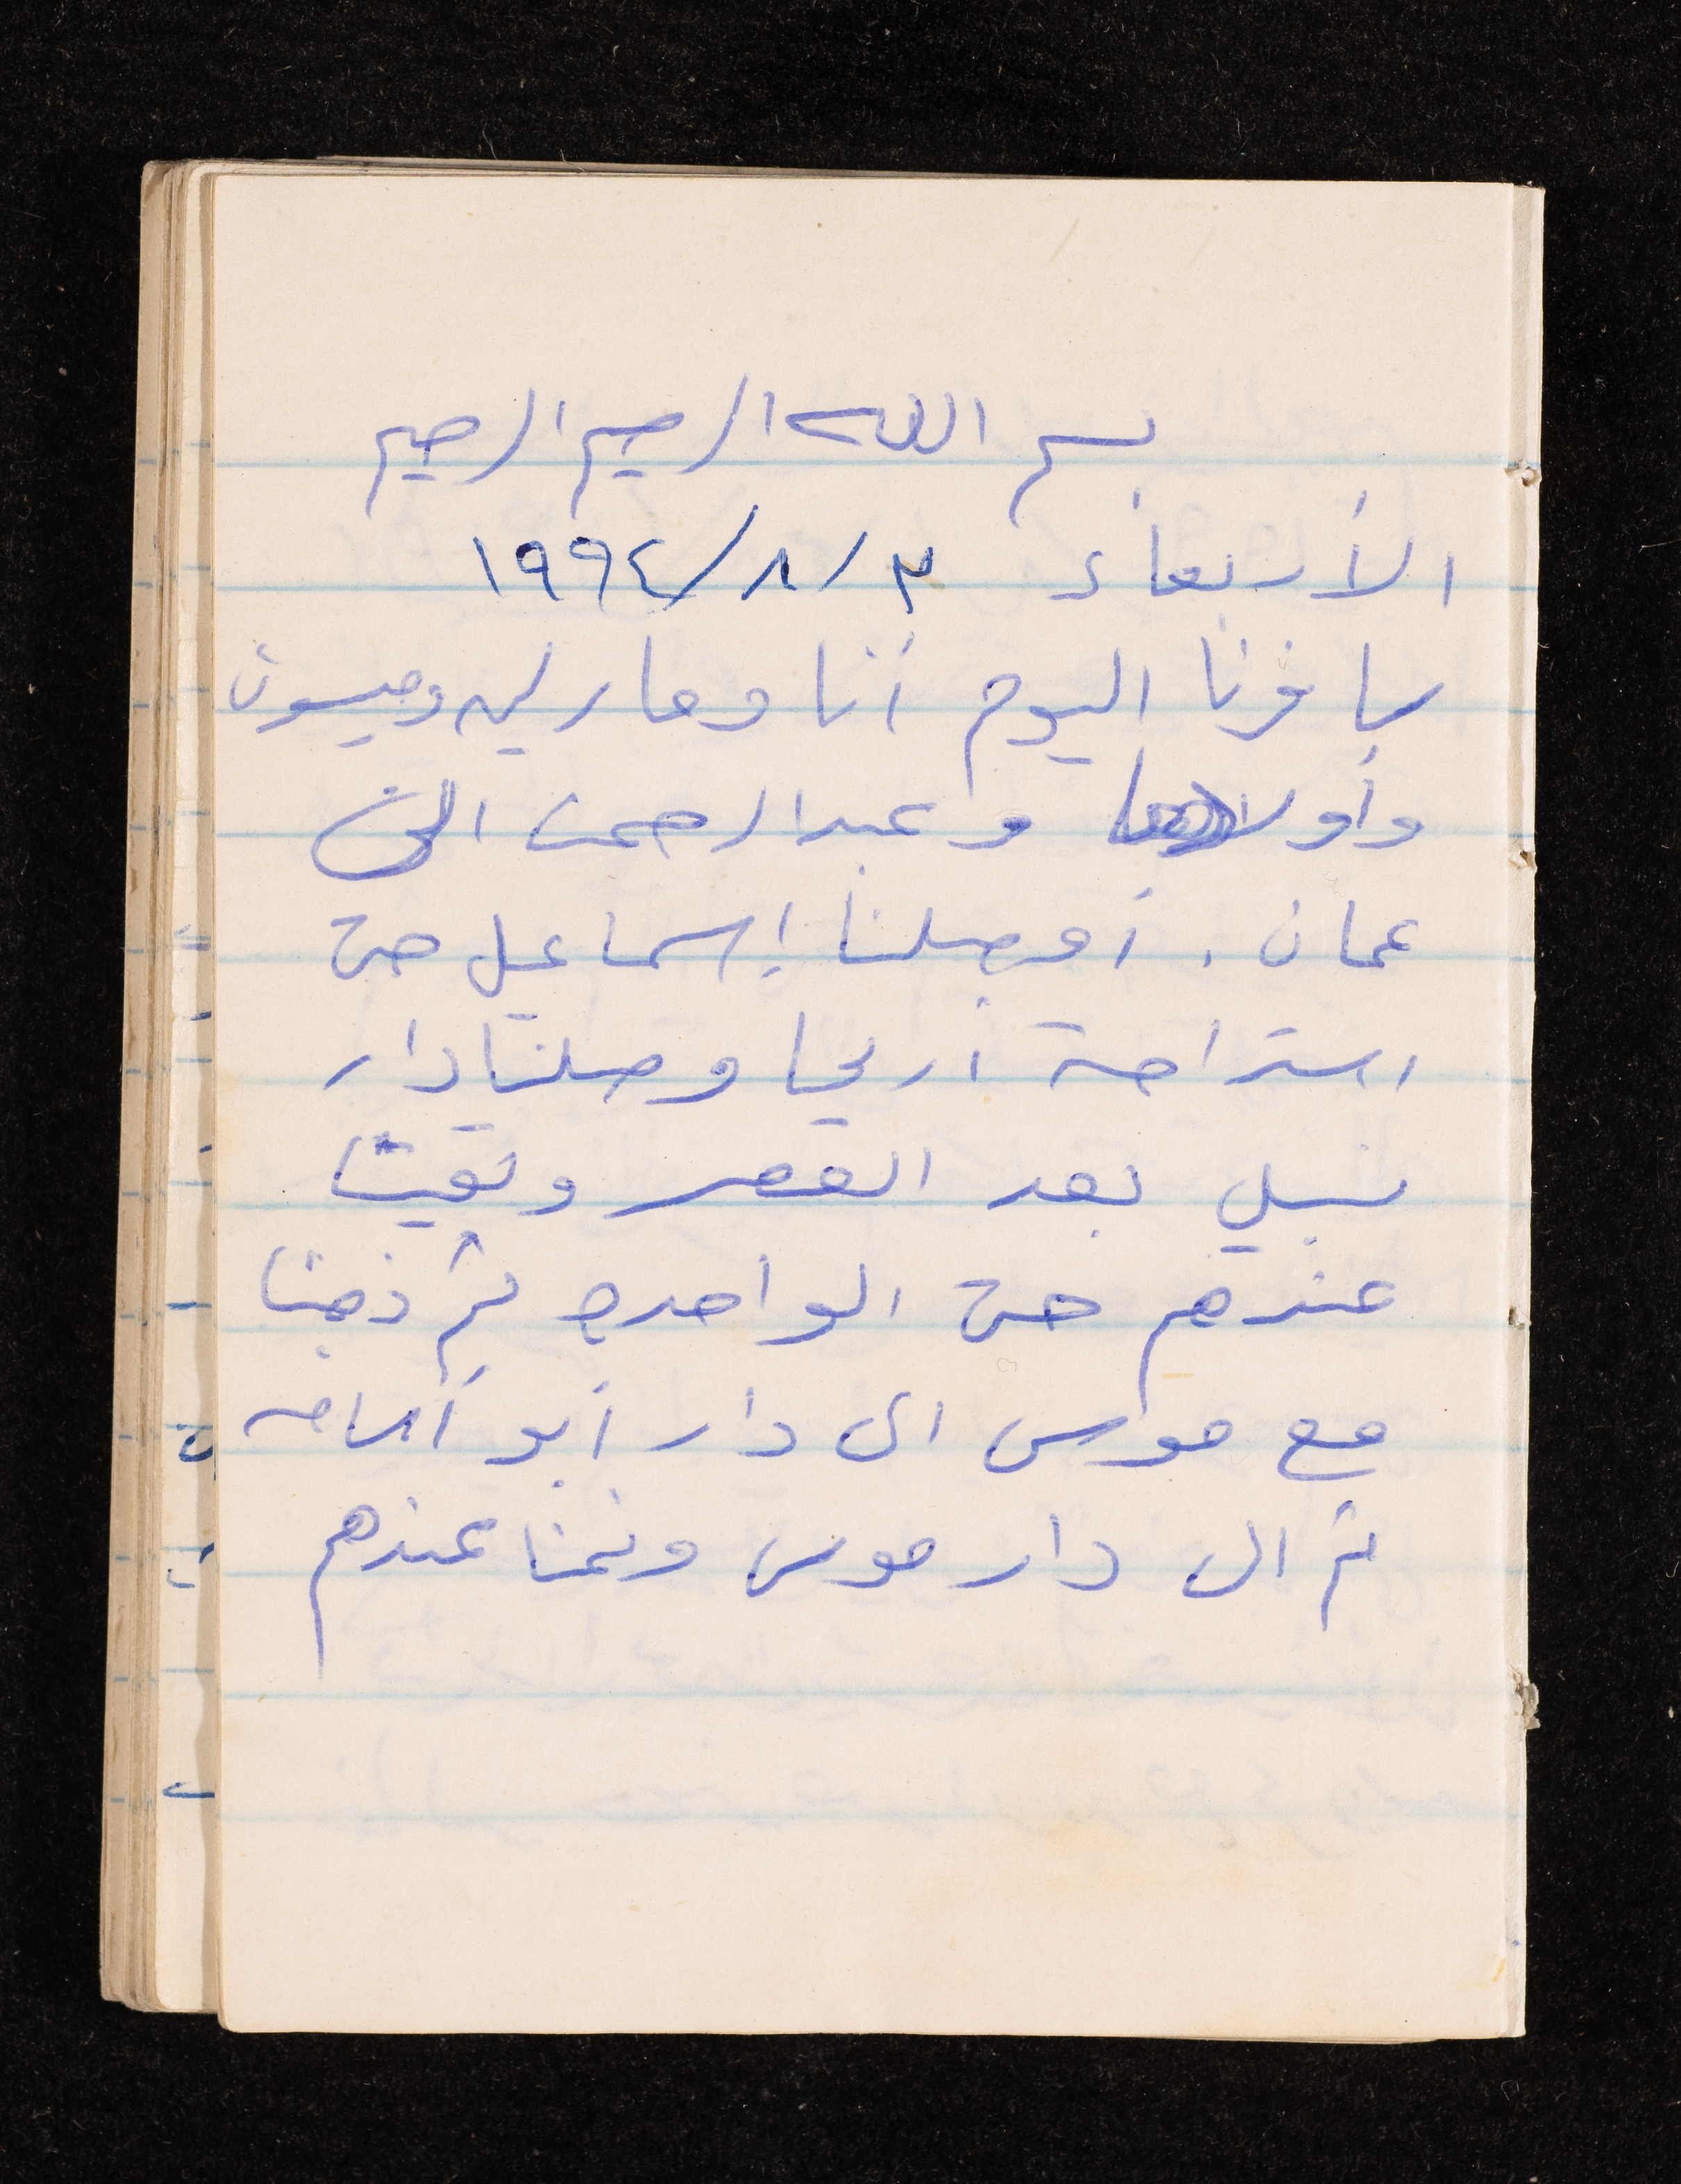 بسم الله الرحيم الرحيم
الأربعاء ٣/٨/١٩٩٤
سافرنا اليوم أنا وماريه وميسون
وأولادها وعبد الرحمن الى
عمان. أوصلنا إسماعيل حتى
استراحة اريحا وصلنا دار
نبيل بعد العصر وبقينا
عندهم حتى الواحدة ثم ذهبنا
مع موسى الى دار أبو أسامه
ثم الى دار موسى ونمنا عندهم